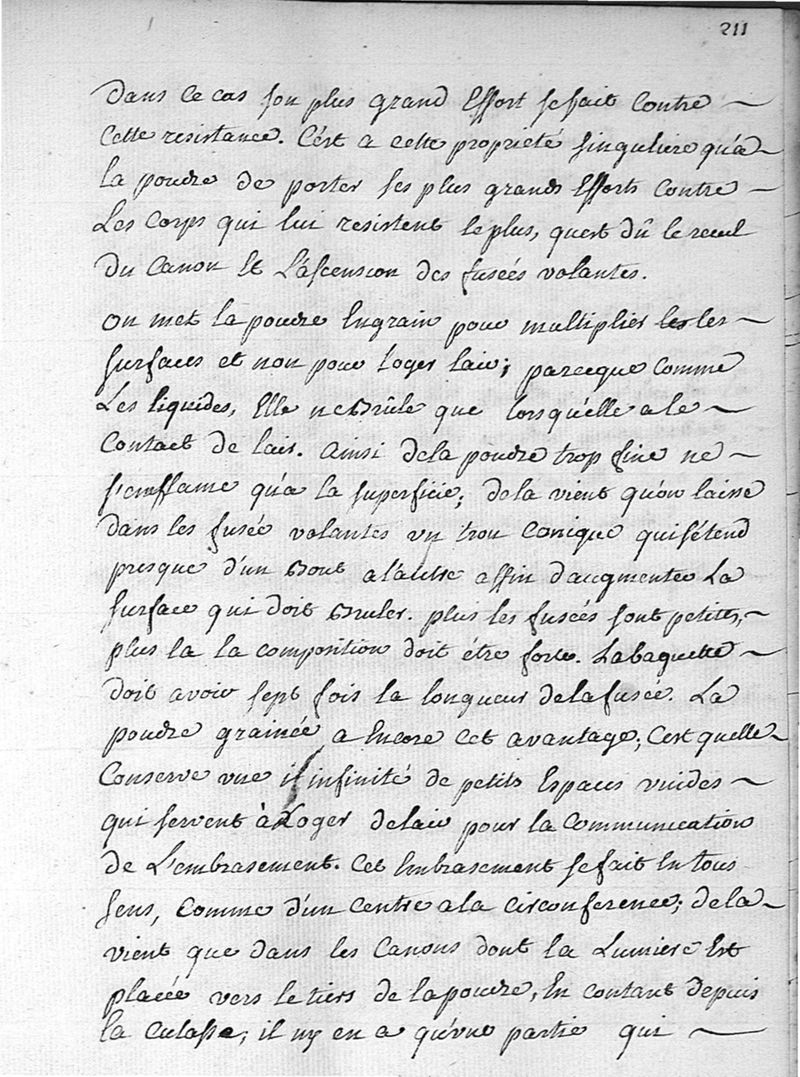 211
Dans Ce cas son plus grand Effort se fait Contre
Cette resistance. C'ést a cette proprieté singuliere qu'a
la poudre de porter ses plus grands Efforts Contre
Les Corps qui lui resistent le plus, qu'est dû le recul
du Canon Et L'ascension des fusées volantes.
on met la poudre Engrain pour multiplier les les
surfaces et non pour Loger l'air; parceque Comme
Les liquides, Elle ne Brûle que lorsqu'elle a le
Contact de l'air. Ainsi de la poudre trop fine ne
s'enflame qu'a la superficie; de la vient qu'on laisse
dans les fusée volantes un trou Conique qui s'étend
presque d'un Bout a l'autre affin d'augmenter La
surface qui doit Bruler. plus les fusées sont petites,
plus la la composition doit étre forte. La baguette
doit avoir sept fois la longueur de la fusée. La
poudre grainée a Encore Cet avantage; C'est quelle
Conserve une infinité de petits Espaces vuides
qui servent à Loger de l'air pour la Communication
de L'embrasement. Cet Embrasement se fait En tous
sens, Comme d'un Centre a la Circonference; de la
vient que dans les Canons dont la Lumiere Est
placée vers le tiers de la poudre, En contant depuis
la Culasse; il ny en a qu'une partie qui